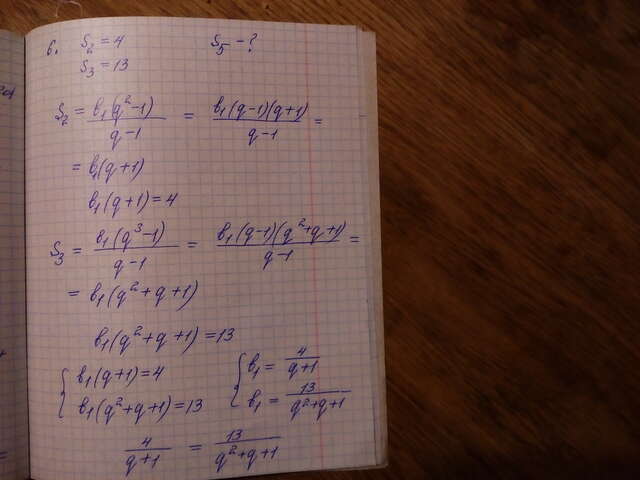 6. S₂ = 4 S₅ - ?
S₃ = 13
S₂ = b₁(q²-1)/(q-1) = b₁(q-1)(q+1)/(q-1) =
= b₁(q+1)
b₁(q+1) = 4
S₃ = b₁(q³-1)/(q-1) = b₁(q-1)(q²+q+1)/(q-1) =
= b₁(q²+q+1)
b₁(q²+q+1) = 13
{ b₁(q+1) = 4 { b₁ = 4/(q+1)
b₁(q²+q+1) = 13 b₁ = 13/(q²+q+1)
4/(q+1) = 13/(q²+q+1)